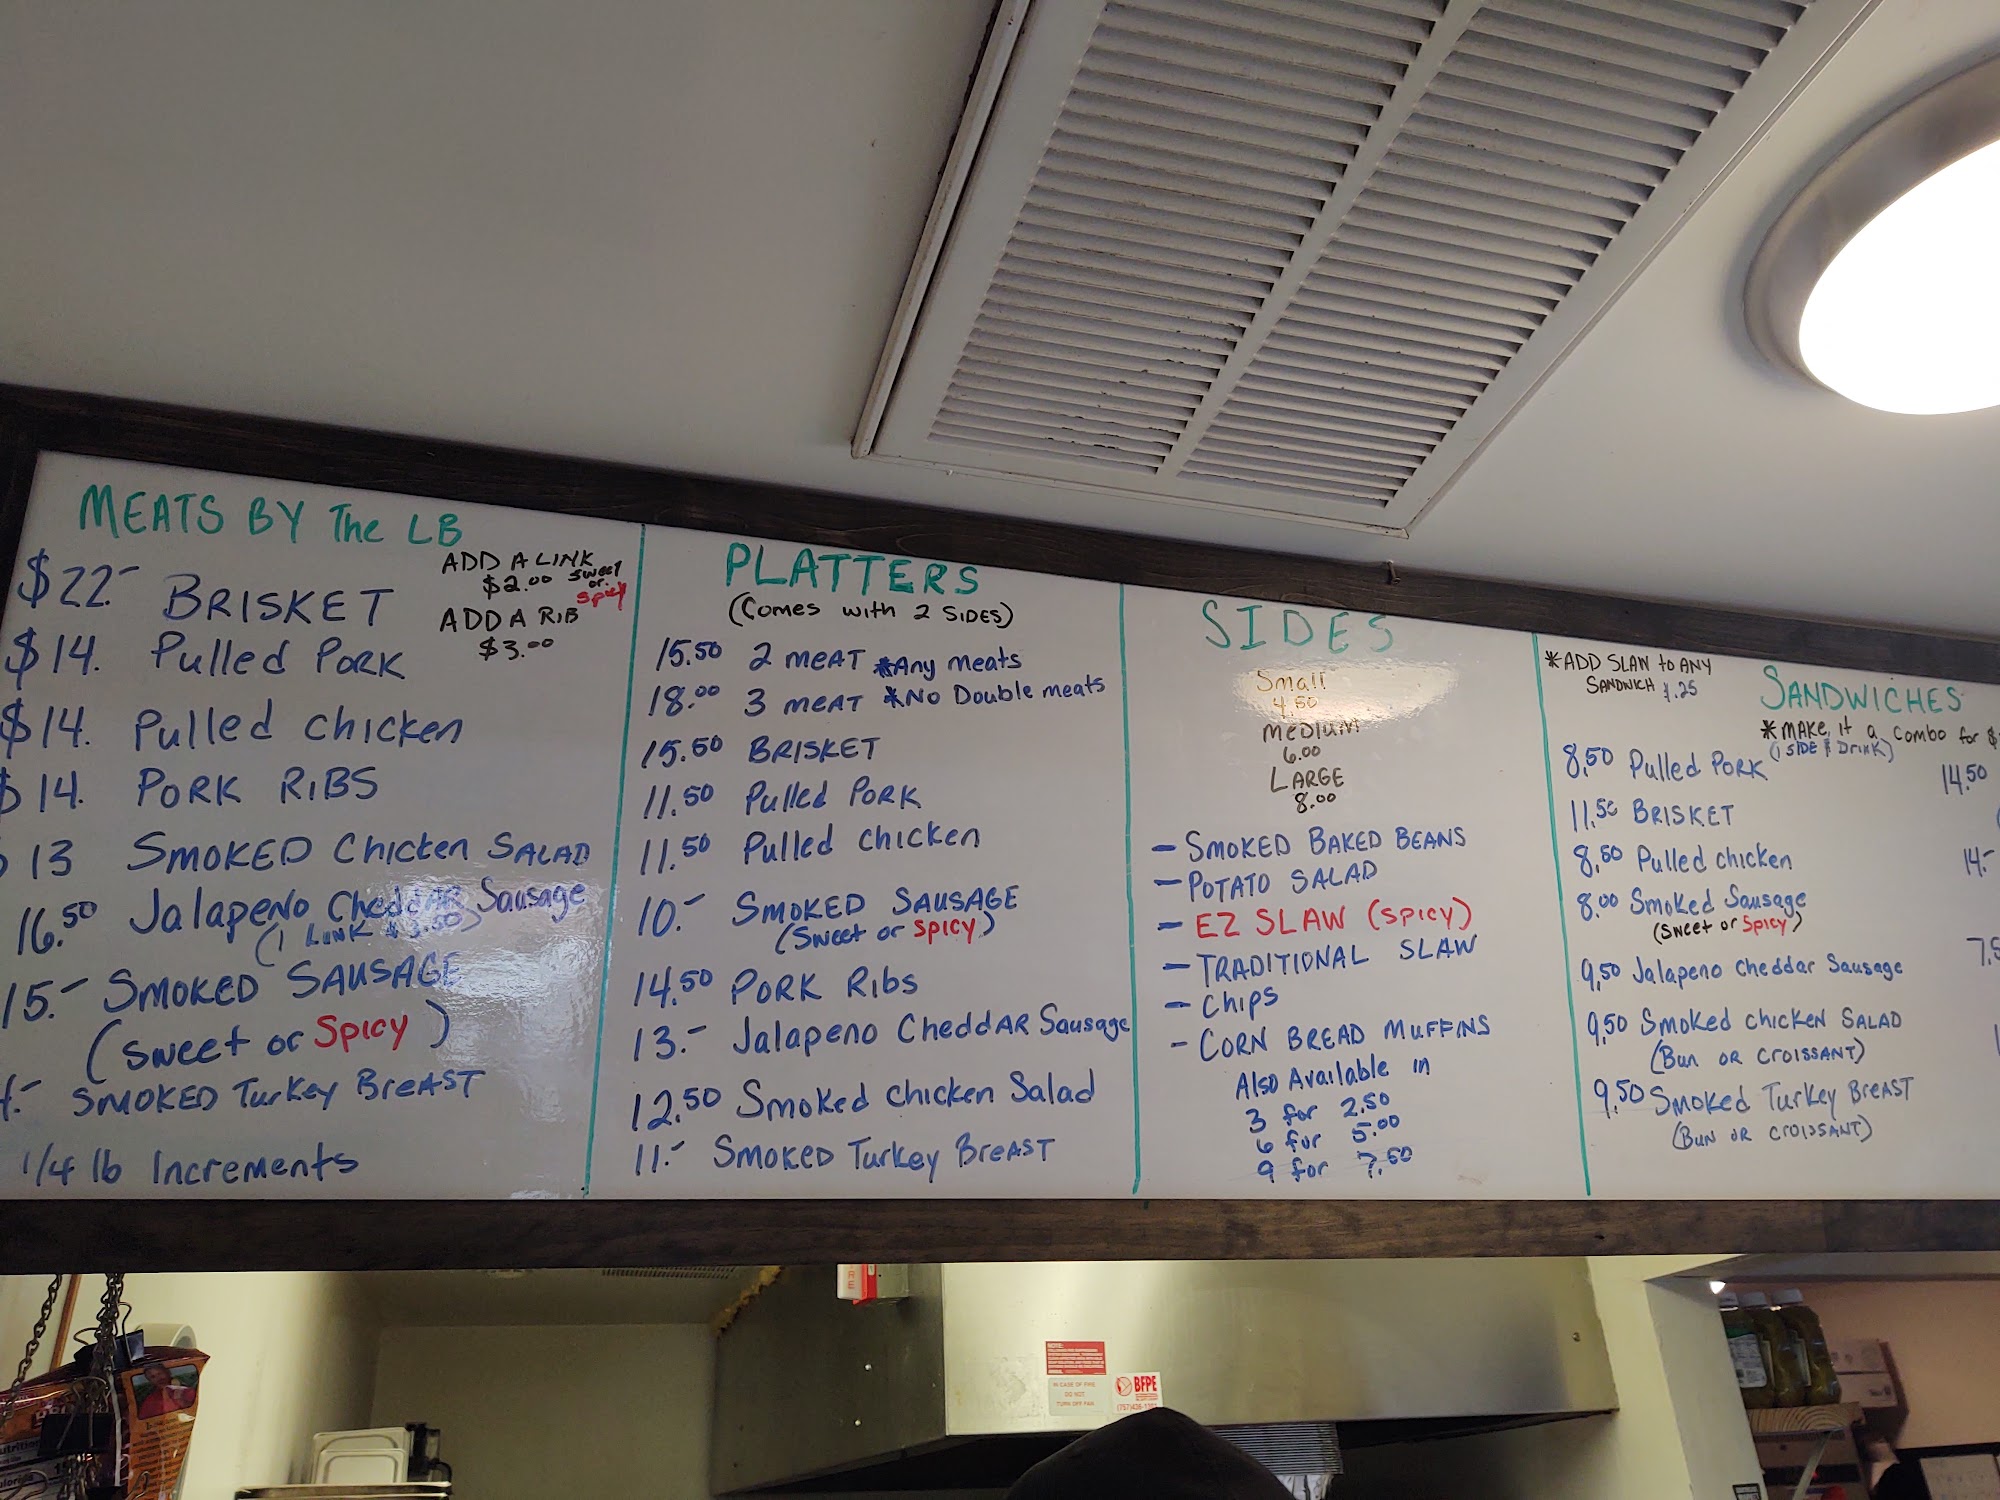 MEATS BY The LB
ADD A LINK
$2.00 sweet
or
spicy
ADD A RIB
$3.00
$22.- BRISKET
$14. Pulled Pork
$14. Pulled chicken
$14. PORK RIBS
13 SMOKED Chicken SALAD
16.50 Jalapeno Cheddar Sausage
(1 LINK $3.50)
15.- SMOKED SAUSAGE
(sweet or Spicy)
SMOKED Turkey BREAST
1/4 lb Increments
PLATTERS
(Comes with 2 SIDES)
15.50 2 meat *Any meats
18.00 3 meat *No Double meats
15.50 BRISKET
11.50 Pulled Pork
11.50 Pulled chicken
10.- SMOKED SAUSAGE
(Sweet or spicy)
14.50 PORK Ribs
13.- Jalapeno Cheddar Sausage
12.50 Smoked chicken Salad
11.- SMOKED Turkey BREAST
SIDES
Small
4.50
medium
6.00
LARGE
8.00
- SMOKED BAKED BEANS
- POTATO SALAD
- EZ SLAW (SPICY)
- TRADITIONAL SLAW
- Chips
- CORN BREAD MUFFINS
Also Available in
3 for 2.50
6 for 5.00
9 for 7.50
*ADD SLAW to ANY
SANDWICH $.25
SANDWICHES
*MAKE it a combo for $
(1 SIDE & Drink)
8.50 Pulled Pork
14.50
11.50 BRISKET
8.50 Pulled chicken
14.-
8.00 Smoked Sausage
(Sweet or Spicy)
9.50 Jalapeno cheddar Sausage
9.50 Smoked chicken SALAD
(Bun or croissant)
9.50 Smoked Turkey BREAST
(Bun or croissant)
NOTE:
IN CASE OF FIRE
DO NOT
TURN OFF FAN
BFPE